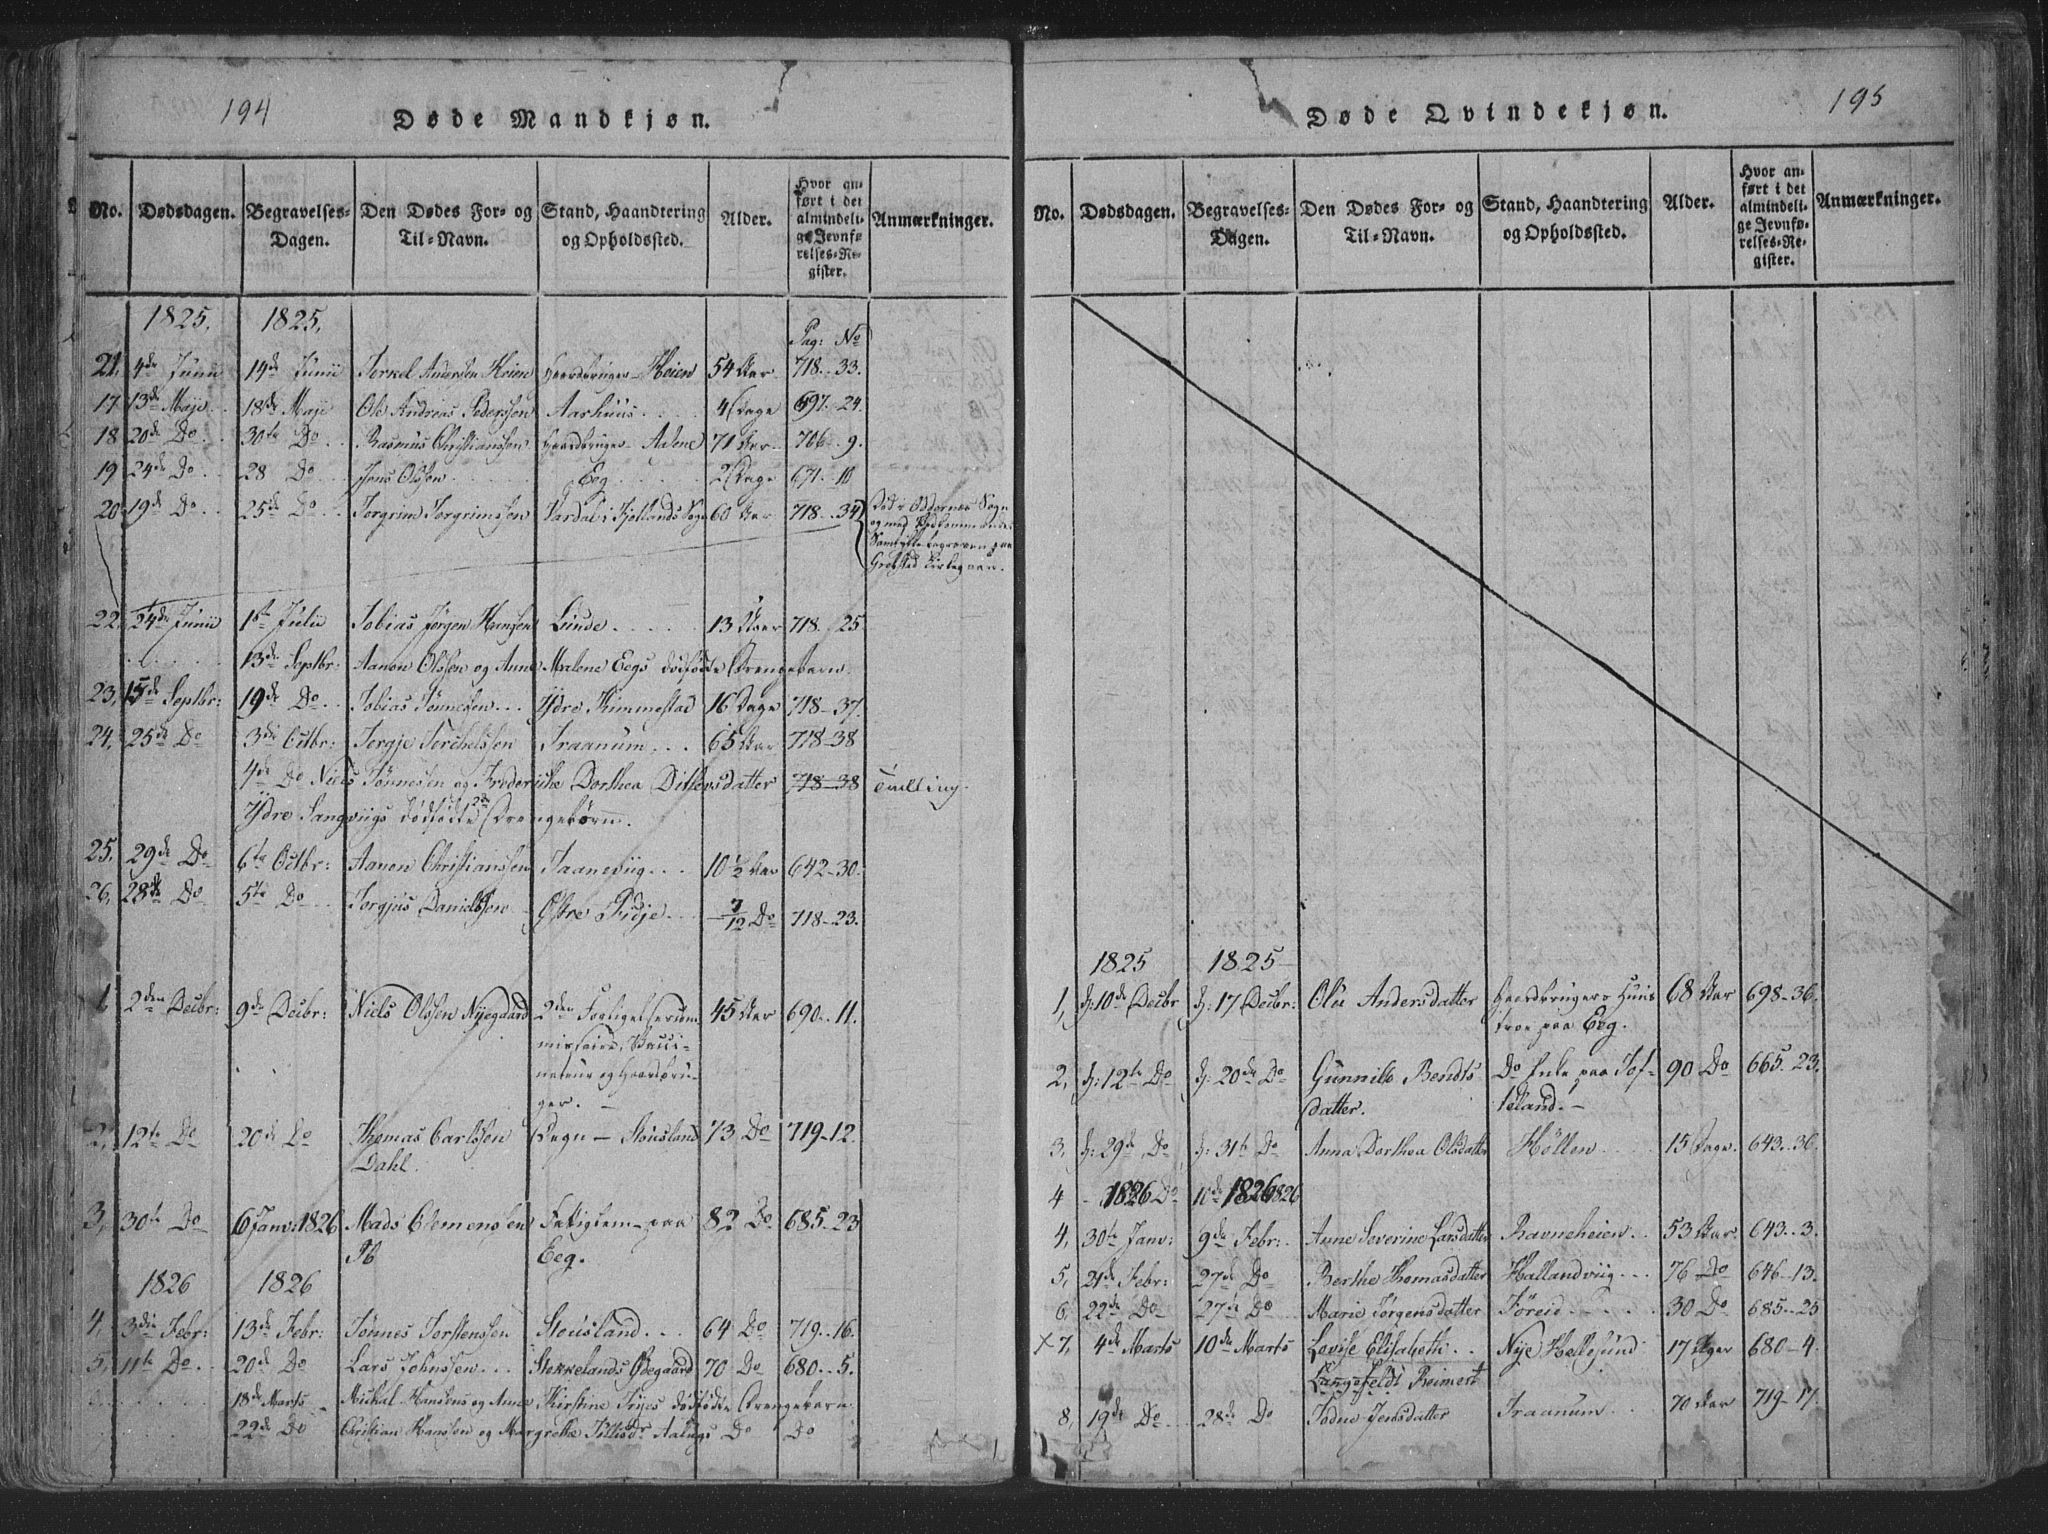 194
Døde Mandkjøn.
No. Dødsdagen. Begravelses-Dagen. Den Dødes For- og Til-Navn. Stand, Haandtering og Opholdssted. Alder. Hvor anført i det almindelige Jevnførelses-Register. Anmærkninger.
1825. 1825. Pag: No
21. 4de Junii 14de Junii Terkel Andersen Heien Gaardbruger Heien 54 Aar 718..33.
17 13de Maje 18de Maje Ole Andreas Pederssen Aarhuus 4 Dage 697..24.
18 20de Do 30te Do Rasmus Christianssen Gaardbruger Aalene 71 Aar 706..9.
19 24de Do 28 Do Jens Olssen Eeg 2 Dage 671..10
20 19de Do 25de Do Torgrim Torgrimssen Vardal i Fjellands Sogn 60 Aar 718..34
Død i Oddernes Sogn
og med Vedkommendes
Samtykke begraven paa
Greipstad Kirkegaard.
22. 24de Junii 1ste Julii Tobias Jørgen Hansen Lunde 13 Aar 718..25.
13de Septbr: Aanon Olssen og Anne Malene Eegs dødfødte Drengebarn.
23, 15de Septbr: 19de Do Tobias Tønnesen Ydre Kimmestad 16 Dage 718-37.
24, 25de Do 3de Octbr: Tergje Terchelssen Traanum 65 Aar 718-38
4de Do Niels Tønnesen og Frederikke Dorthea Ditlevsdatter 718-38 Tvilling.
Ydre Langviigs dødfødte 2de Drengebørn.
25. 29de Do 6te Octbr: Aanon Christianssen Taaneviig 10 1/2 Aar 642-30.
26, 28de Do 5te Do Torgjus Danielssen Østre Fidje 7/12 Do 718-23.
1 2den Decbr: 9de Decbr: Niels Olssen Nyegaard 2den Forligelsescommissair, Vaccinateur og Gaardbruger. 45 Aar 690..11.
2, 12te Do 20de Do Thomas Carlssen Dahl. Degn - Stousland 73 Do 719-12.
3, 30te Do 6 Janv: 1826 Mads Clemenssen Fattiglem paa Eeg. 82 Do 685-23
1826 1826
4, 3die Febr: 13de Febr: Tønnes Torstenssen Stousland 64 Do 719..16.
5, 11te Do 20de Do Lars Johnssen Stokkelands Ødegaard 70 Do 680..5.
18de Marts Michal Hansens og Anne Kirstine Tryes dødfødte Drengebarn
22de Do Christian Hanssen og Margrethe Tillisdr Aalugs Do Do
195
Døde Qvindekjøn.
No. Dødsdagen. Begravelses-Dagen. Den Dødes For- og Til-Navn. Stand, Haandtering og Opholdssted. Alder. Hvor anført i det almindelige Jevnførelses-Register. Anmærkninger.
1825 1825
1, d: 10de Decbr d: 17 Decbr: Olu Andersdatter Gaardbrugers Huustroe paa Eeg. 68 Aar 698-36.
2, d: 12te Do d: 20de Do Gunnild Bendtsdatter. Do Enke paa Tofteland. 90 Do 665-23.
3, d: 29de Do d: 31te Do Anna Dorthea Olsdatter Höllen 15 Dage 643..36.
4 1826 Do 10de 1826 1826
4, 30te Janv: 9de Febr: Anne Severine Larsdatter Ravneheien 53 Aar 643..3.
5, 21de Febr: 27de Do Berthe Thomasdatter Hallandviig 76 Do 646-13.
6, 22de Do 27de Do Marie Jørgensdatter Föreid 30 Do 685..25
x 7, 4de Marts 10de Marts Lovise Elisabeth Langefeldt Reimert Nye Hellesund 17 Uger 680-4.
8, 19de Do 28de Do Todne Jensdatter Traanum 70 Aar 719-17.